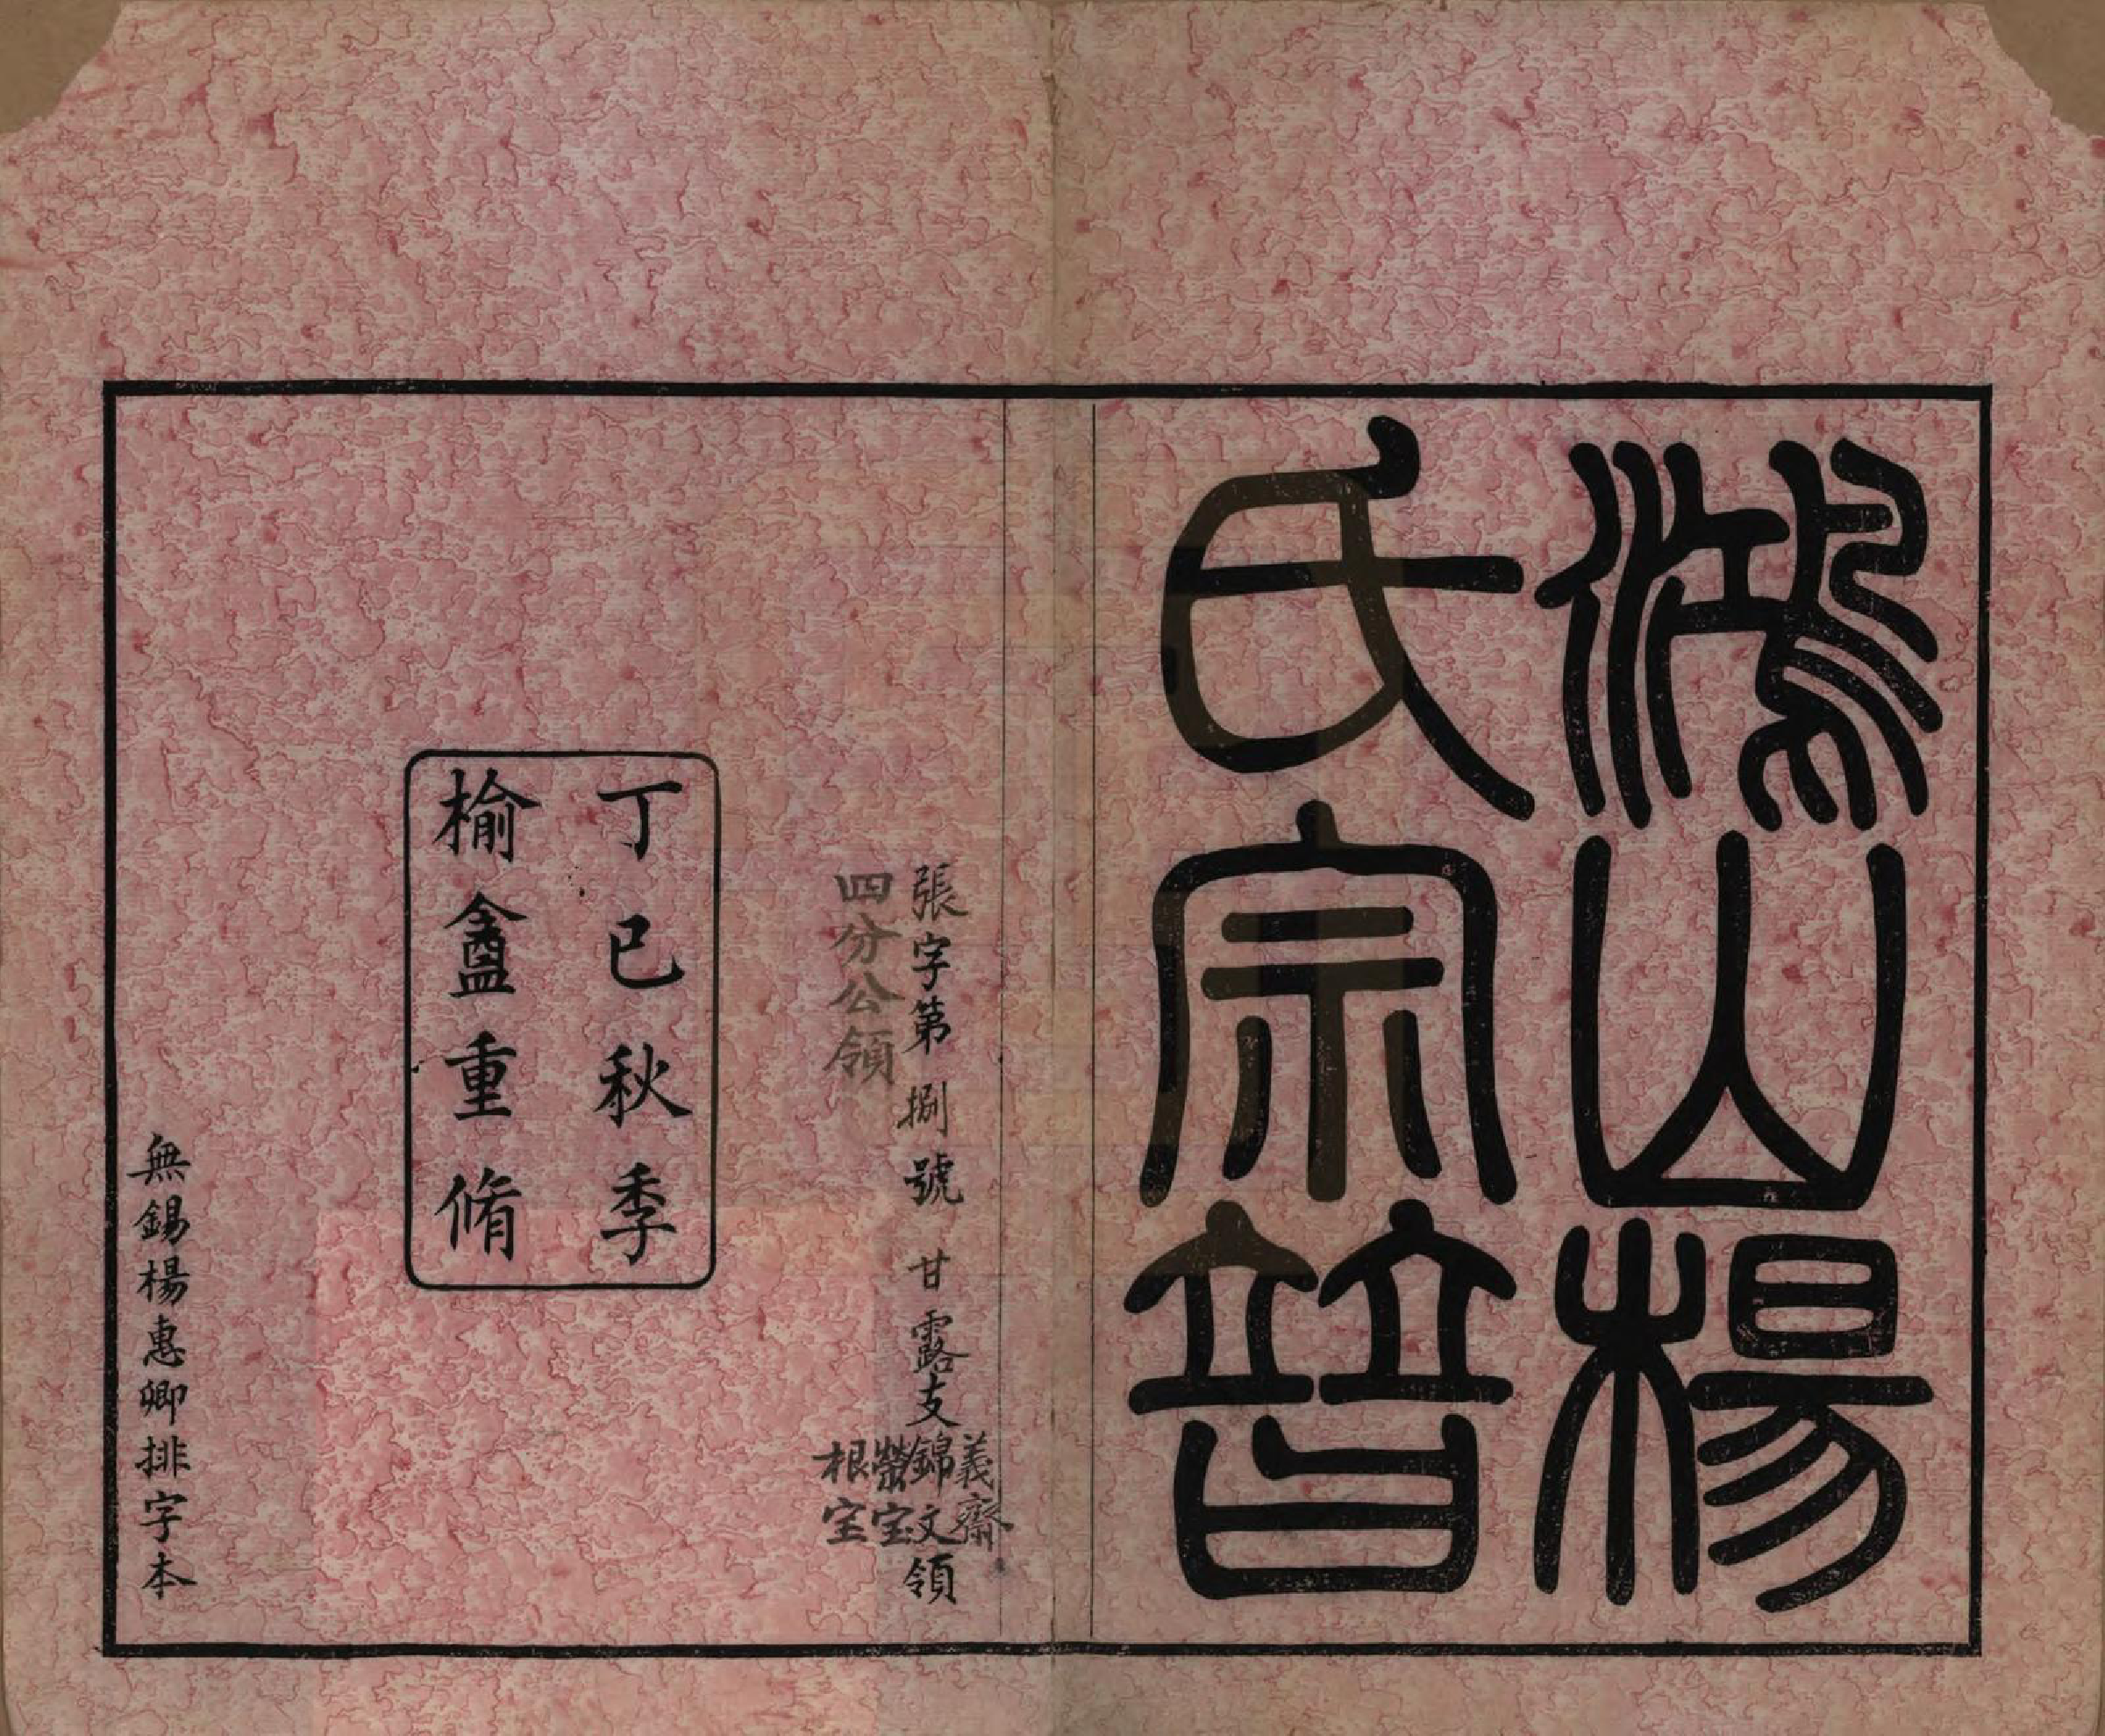 鴻山楊
氏宗譜
張字第捌號 甘露支 義齋 錦文 榮宝 根宝 領
四分公領
丁巳秋季
榆盦重脩
無錫楊惠卿排字本